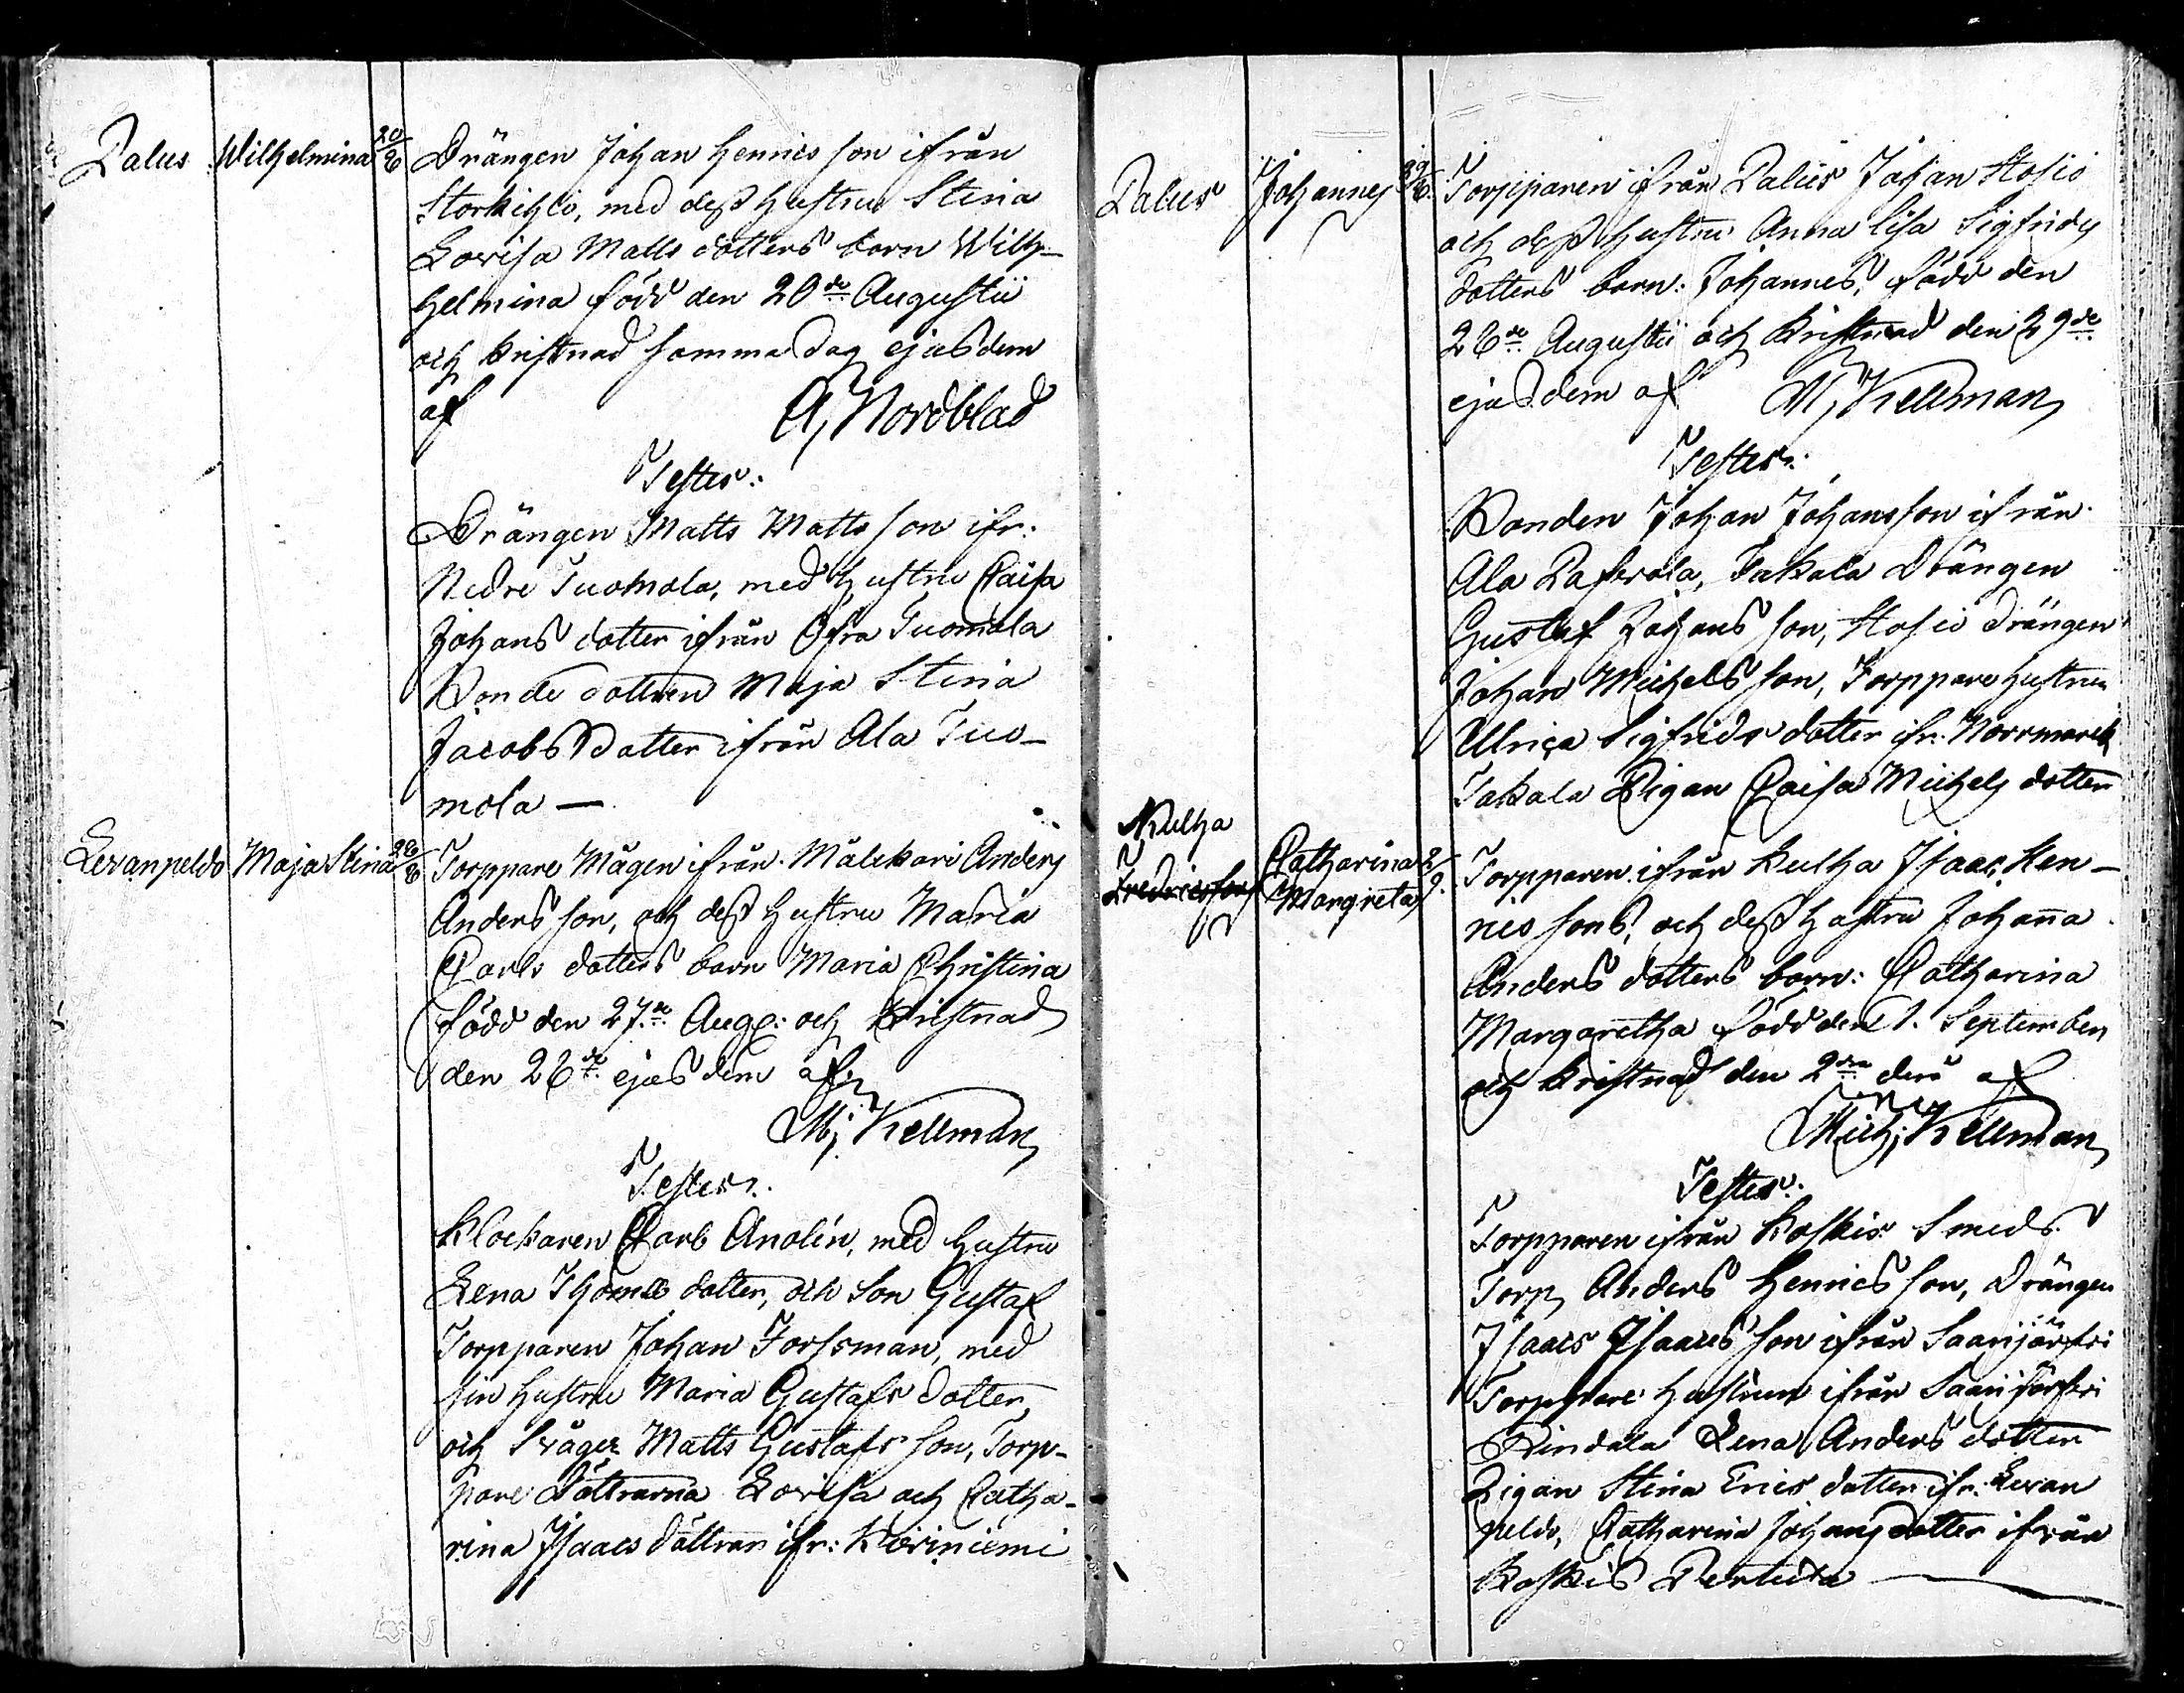 Palus Wilhelmina 20/8
Drängen Johan Henrics son ifrån
Storkihlio, med dess hustru Stina
Lovisa Matts dotters barn Wilh-
helmina född den 20de Augustii
och kristnad samma dag ejusdem
af A, Nordblad
Testes:
Drängen Matts Mattsson ifr:
Nedre Tuomola, med hustru Caisa
Johans dotter ifrån Öfra Tuomola
Bonde dottren Maja Stina
Jacobs dotter ifrån Ala Tuo-
mola —
Levanpeldo Maja Stina 28/8
Torppare Mågen ifrån Målckari Anders
Anders son, och dess hustru Maria
Carls dotters barn Maria Christina
född den 27de Aug: och Kristnad
den 28de ejusdem af
M; Kellman
Testes:
Klockaren Carl Anolin, med hustru
Lena Thoms dotter, och Son Gustaf
Torpparen Johan Forssman, med
sin hustru Maria Gustafs dotter
och Svåger Matts Gustafs son, Torp-
pare Döttrarna Lovisa och Catha-
rina Isaacs döttrar ifr: Kiviniemi
Palus Johannes 29/8
Torpparen ifrån Palus Johan Stosio
och dess hustru Anna Lisa Sigfrids
dotters barn: Johannes, född den
28de Augustii och Kristnad den 29de
ejusdem af M; Kellman
Testes:
Bonden Johan Johansson ifrån
Ala Paserola, Takala Drängen
Gustaf Johans son, Stosio drängen
Johan Michels son, Torppare hustrun
Ulrica Sigfrids dotter ifr. Norrmarck
Takala Pigan Caisa Michels dotter
Kulha
Fredricsson Catharina Margreta 2/9.
Torpparen ifrån Kulha Isaac Hen-
rics sons, och dess hustru Johanna
Anders dotters barn: Catharina
Margaretha född den 1. September
och kristnad den 2dra ders af
Mich; Kellman
Testes:
Torpparen ifrån Koskis Smeds
Torp Anders Henrics son, Drängen
Isaacs Isaacs son ifrån Saarijärfvi
Torppare hustrun ifrån Saarijärfvi
Rindala Lena Anders dotter
Pigan Stina Erics dotter ifr: Levan
peldo, Catharina Johans dotter ifrån
Koskis Perlula